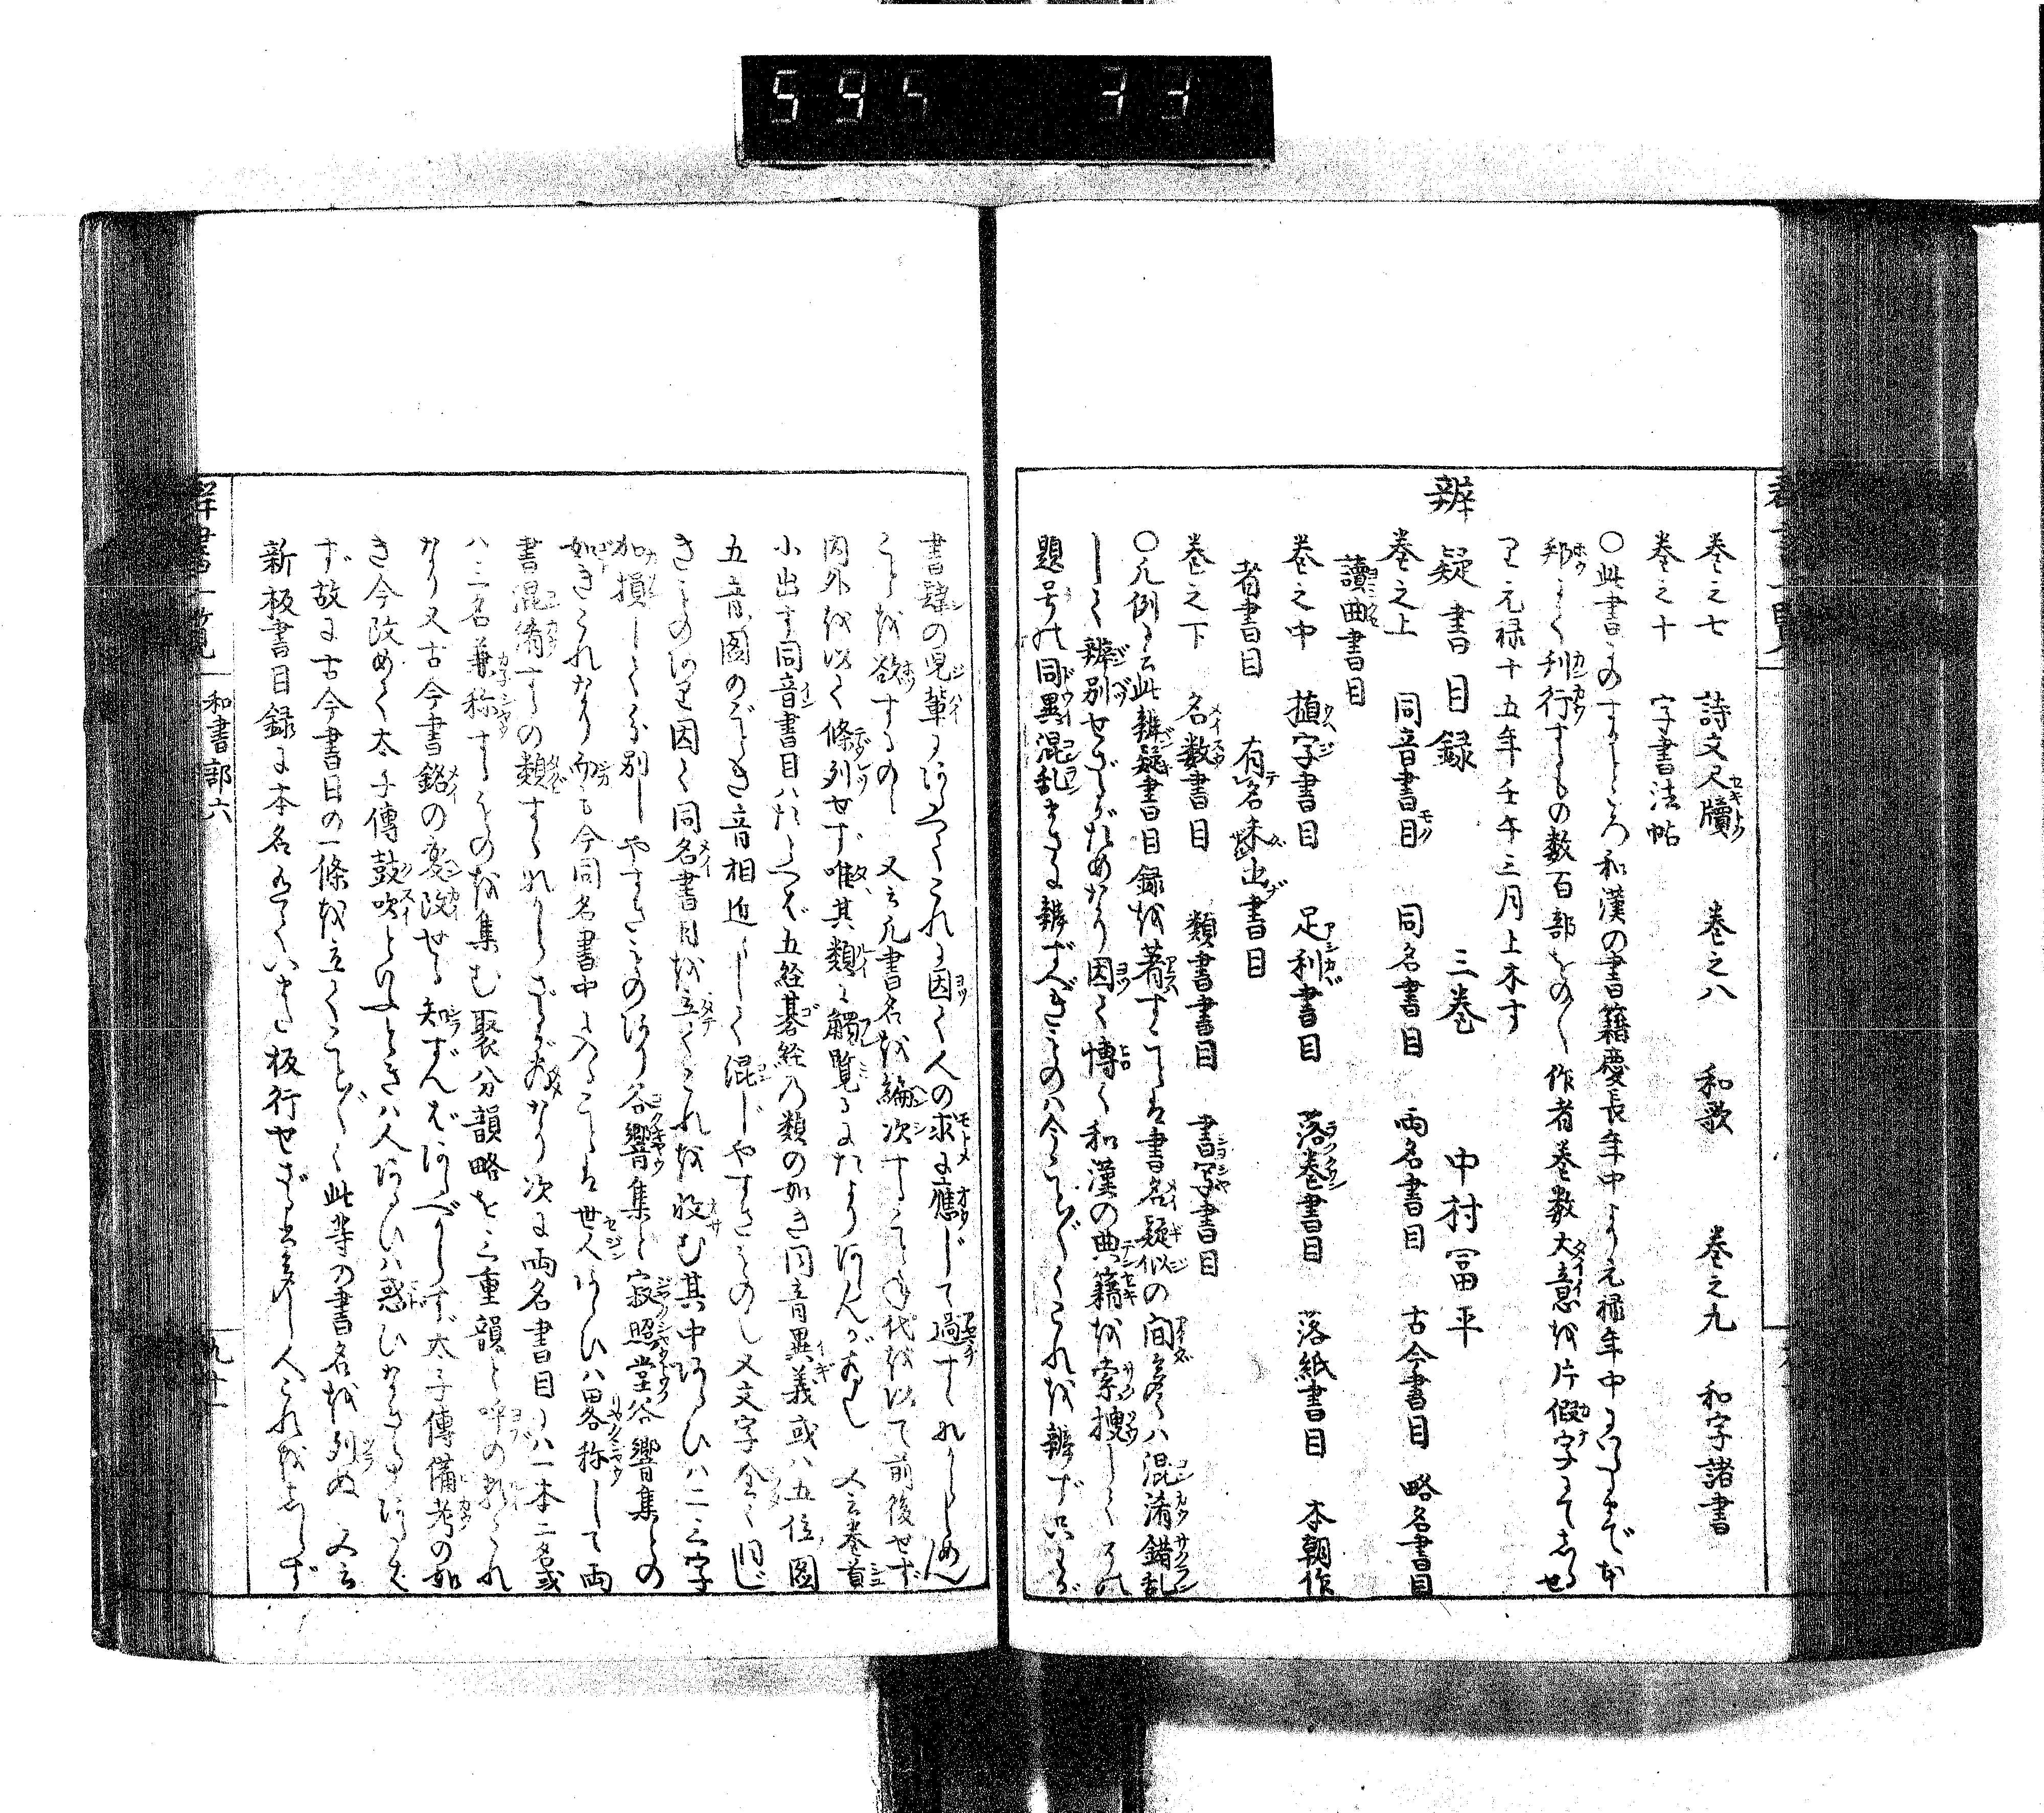 595 33
巻之七 詩文尺牘 巻之八 和歌 巻之九 和字諸書
巻之十 字書法帖
〇此書ものするところ和漢の書籍慶長年中より元禄年中にいたるまで本
邦にて刊行するもの数百部をの〱作者巻数大意を片假字にてしるせ
り元禄十五年壬午三月上木す
辨疑書目録 三巻 中村富平
巻之上 同音書目 同名書目 両名書目 古今書目 略名書目
讀曲書目
巻之中 植字書目 足利書目 落巻書目 落紙書目 本朝作
者書目 有名未出書目
巻之下 名数書目 類書書目 書写書目
〇凡例に云此辨疑書目録を著すことは書名疑似の間 混淆錯乱
して辨別せざるがためなり因て博く和漢の典籍を索捜して
題号の同異混乱 辨ずべきものハ今ことごとくこれを辨ず
書肆の児輩に これに因て人の求に應じて過すくなからしめん
ことを欲するのミ 又云凡書名を編次すること年代を以て前後せず
内外を以て條列せず唯其類に觸覧るにたよりあらんがためなり 又云巻首
小出す同音書目ハたとへば五経碁経の類の如き同音異義或ハ五位圖
五音圖のごとき音相近しくして混じやすきもの 又文字全く同じ
きものあり因て同名書目を立てこれを収む其中あるひハ二三字
加損して分別しやすきものあり谷響集と寂照堂谷響集との
如きこれなり而も今同名書中に入ることは世人あるひハ畧称して両
書混淆するの類すくなからざるが為なり次に両名書目にハ一本二名或
ハ三名兼称するものを集む聚分韻略を三重韻と呼の類これ
なり又古今書銘の変改せる知ずんばあるべからず太子傳備考の如
き今改めて太子傳鼓吹といふときハ人あるひハ惑ひ
ず故に古今書目の一條を立てことごとく此等の書名を列ぬ 又云
新板書目録に本名 いまだ板行せざる 人これをしらず
群書一覧 和書部六 九十一